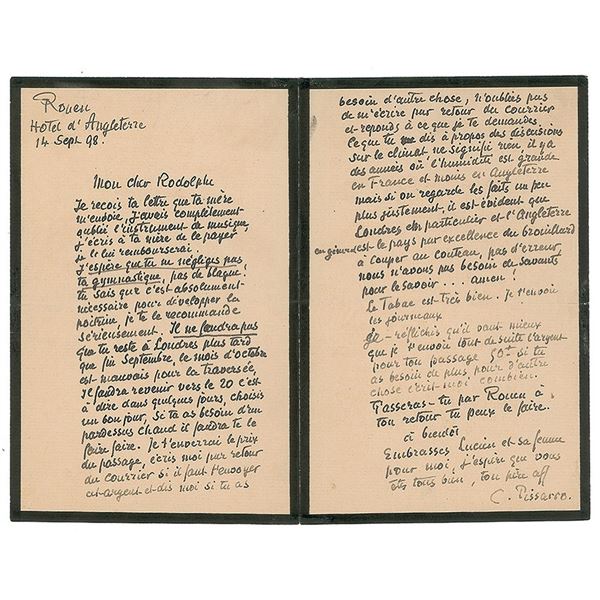 Rouen
Hotel d'Angleterre
14 Sept 98.
Mon cher Rodolphe
Je reçois ta lettre que ta mère
m'envoie, j'avais complètement
oublié l'instrument de musique,
j'écris à ta mère de le payer
je le lui rembourserai.
J'espère que tu ne négliges pas
ta gymnastique, pas de blague!
tu sais que c'est absolument
nécessaire pour développer la
poitrine, je te le recommande
sérieusement. Il ne faudra pas
que tu reste à Londres plus tard
que fin Septembre, le mois d'octobre
est mauvais pour la traversée,
Il faudra revenir vers le 20 c'est
à dire dans quelques jours, choisis
un bon jour, si tu as besoin d'un
pardessus chaud il faudra te le
faire faire. je t'enverrai le prix
du passage, écris moi par retour
du courrier si il faut t'envoyer
cet argent et dis moi si tu as
besoin d'autre chose, n'oublies pas
de m'écrire par retour du courrier
et réponds à ce que je te demande.
Ce que tu me dis à propos des discusions
sur le climat ne signifie rien, il y a
des années où l'humidité est grande
en France et moins en Angleterre
mais si on regarde les faits un peu
plus justement, il est évident que
Londres en particulier et l'Angleterre
en général est le pays par excellence du brouillard
à couper au couteau, pas d'erreur,
nous n'avons pas besoin de savants
pour le savoir .... amen!
Le Tabac est très bien. je t'envoie
les journeaux
Je réfléchis qu'il vaut mieux
que je t'envoie tout de suite l'argent
pour ton passage 50f si tu
as besoin de plus pour d'autre
chose écrit-moi combien.
Passeras-tu par Rouen à
ton retour tu peux le faire.
à bientôt
Embrasses Lucien et sa femme
pour moi, j'espère que vous
êtes tous bien, ton père aff
C. Pissarro.